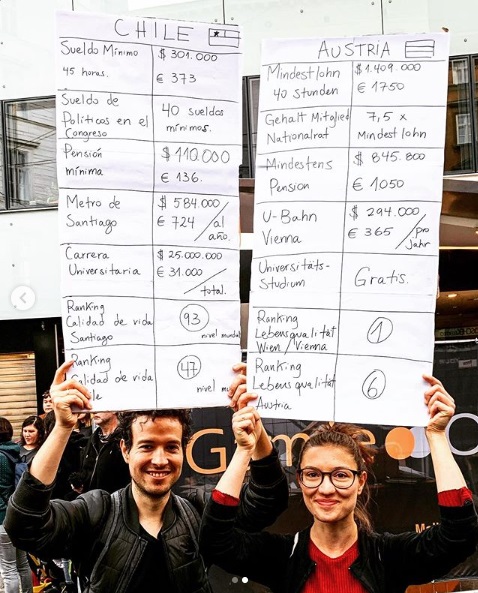 CHILE
Sueldo Mínimo
45 horas.
$ 301.000
€ 373
Sueldo de
Políticos en el
Congreso
40 sueldos
mínimos.
Pensión
mínima
$ 110.000
€ 136.
Metro de
Santiago
$ 584.000
€ 724 / al
año.
Carrera
Universitaria
$ 25.000.000
€ 31.000
/ total.
Ranking
Calidad de vida
Santiago
93
nivel mundial
Ranking
Calidad de vida
47
nivel
AUSTRIA
Mindestlohn
40 Stunden
$ 1.409.000
€ 1750
Gehalt Mitglied
Nationalrat
7,5 x
Mindestlohn
Mindestens
Pension
$ 845.800
€ 1050
U-Bahn
Vienna
$ 294.000
€ 365 / pro
Jahr
Universitäts-
Studium
Gratis.
Ranking
Lebensqualität
Wien / Vienna
1
Ranking
Lebensqualität
Austria
6